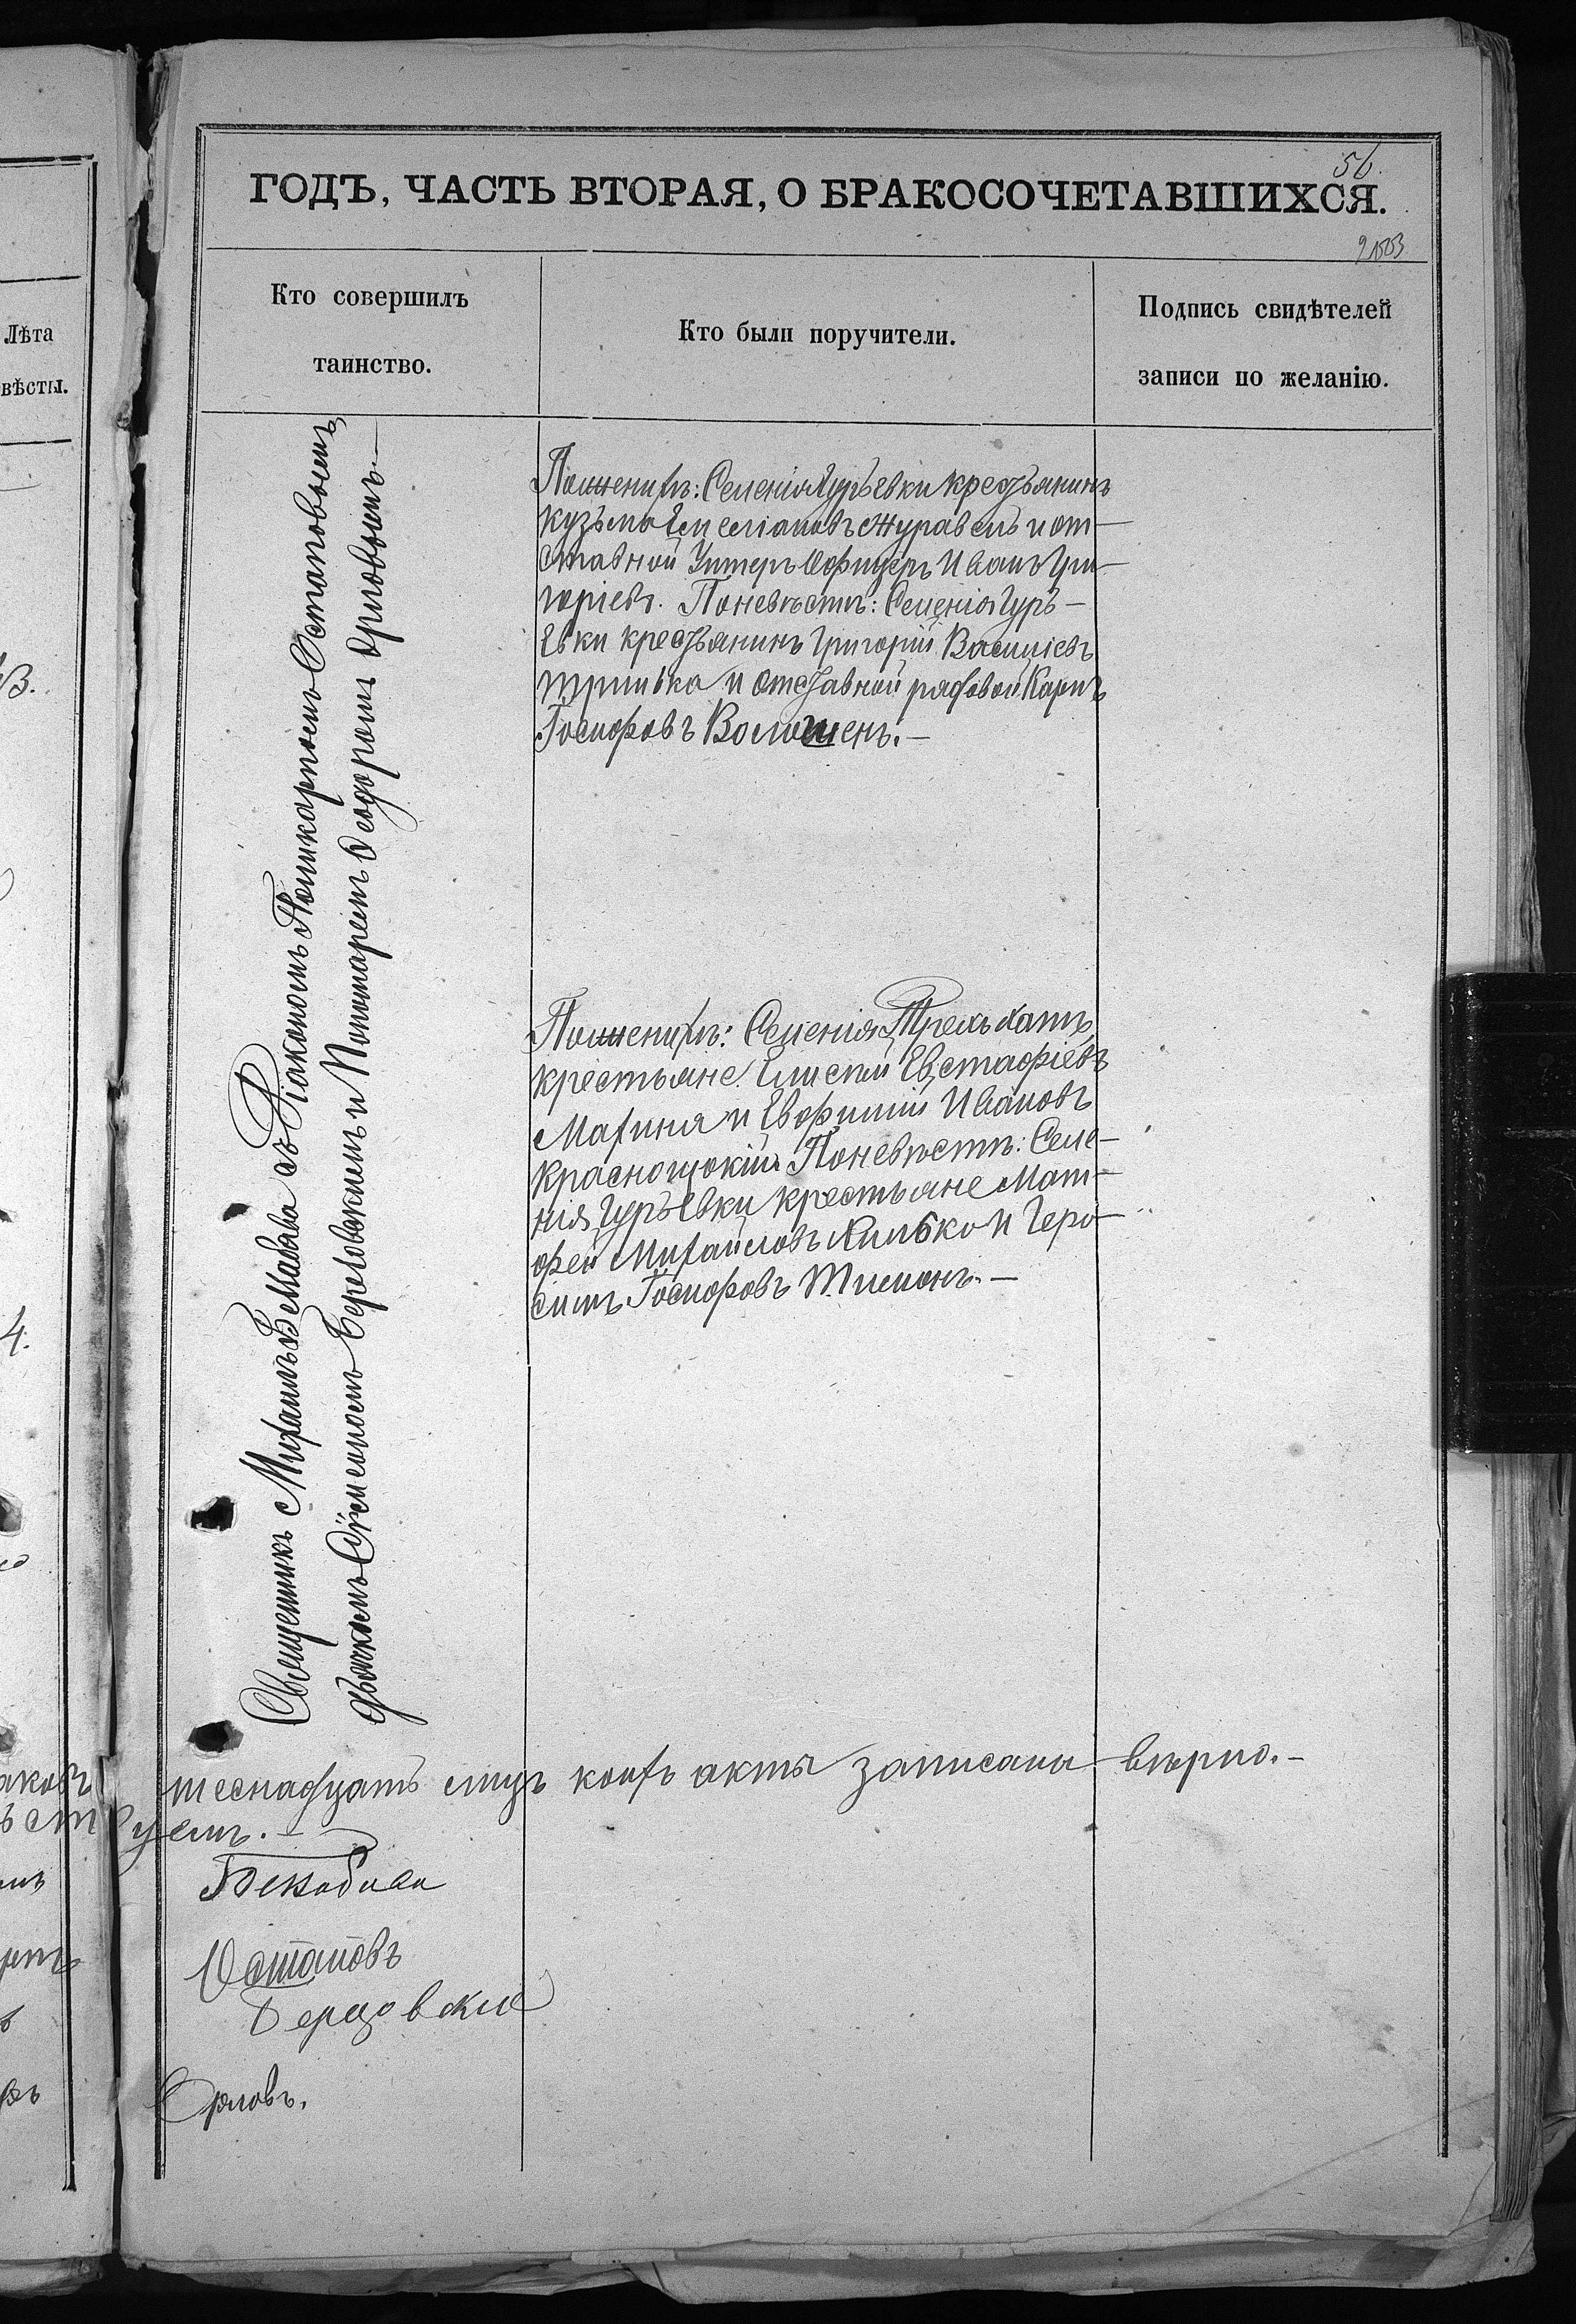 56.
ГОДЪ, ЧАСТЬ ВТОРАЯ, О БРАКОСОЧЕТАВШИХСЯ.
Лѣта
вѣсты.
Кто совершилъ
таинство.
Кто были поручители.
Подпись свидѣтелей
записи по желанію.
Священникъ Михаилъ съ Діакономъ Поликарпомъ Остаповымъ,
дьячкомъ и Пономаремъ Ѳеодоромъ Орловымъ.—
Поженихѣ: Селенія Гурьевки крестьянинъ
Кузьма Емеліановъ Журавель и от-
ставной Унтеръ Офицеръ Иванъ Гри-
горіевъ. Поневѣстѣ: Селенія Гурь-
евки крестьянинъ Григорій Василіевъ
и отставной рядовой Карпъ
Іосифовъ Волошенъ.—
Поженихѣ: Селенія Трехъ Хатъ
крестьяне Елисей Евстафіевъ
Махиня и Евфимій Ивановъ
Краснощокій. Поневѣстѣ: Селе-
нія Гурьевки крестьяне Мат-
фей Михайловъ Хилько и Гера-
симъ Іосифовъ
теснадцать лицъ коихъ акты записаны вѣрно.—
уемъ.—
Остаповъ
Орловъ.